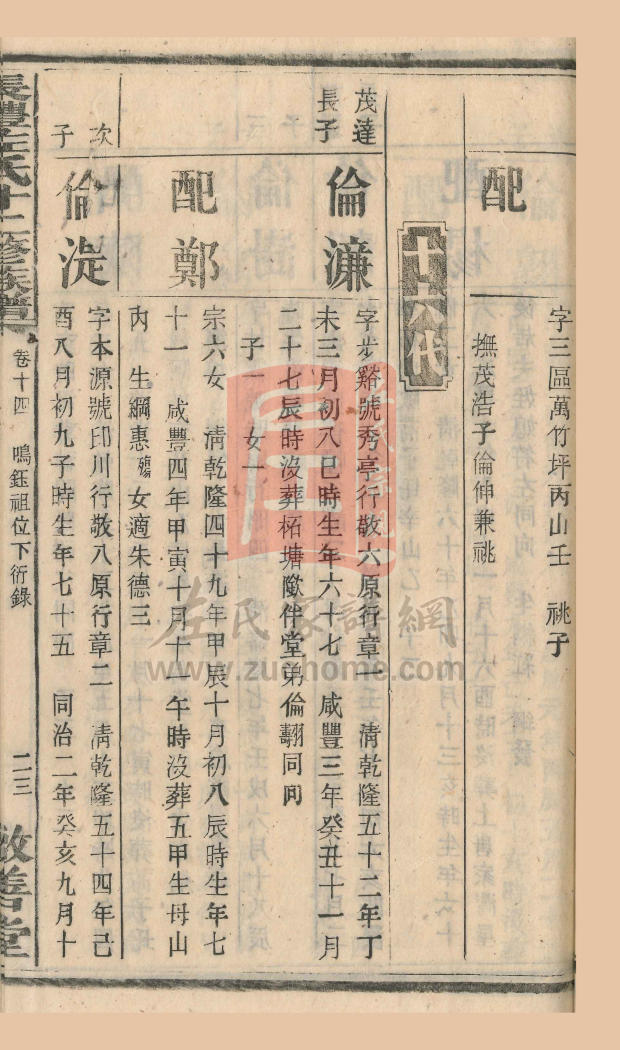 字三區萬竹坪丙山壬　祧子
配
撫茂浩子倫伸兼祧
十八代
茂達
長子
倫濂
字步谿號秀亭行敬六原行章十　清乾隆五十二年丁
未三月初八巳時生年六十七　咸豐三年癸丑十一月
二十七辰時沒葬柘塘歐伴堂弟倫翿同向
子一　女一
配鄭
宗六女　清乾隆四十九年甲辰十月初八辰時生年七
十一　咸豐四年甲寅十月十一午時沒葬五甲生母山
內　生綱惠殤　女適朱德三
次
子
倫湜
字本源號印川行敬八原行章二五　清乾隆五十四年己
酉八月初九子時生年七十五　同治二年癸亥九月十
長灃左氏十二修族譜
卷十四　鳴鈺祖位下衍錄
二三
敬善堂
左氏家譜網
www.zuohome.com